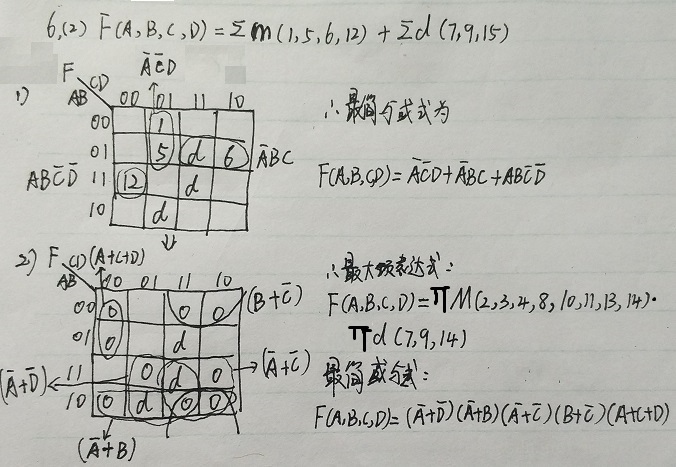 6.(2) F(A,B,C,D)=Σm(1,5,6,12)+Σd(7,9,15)
1)
F
CD
AB
00 01 11 10
00 1
01 5 d 6
11 12 d
10 d
A̅C̅D
A̅BC
ABC̅D̅
∴最简与或式为
F(A,B,C,D)=A̅C̅D+A̅BC+ABC̅D̅
2)
F
CD
AB
(A+C+D)
00 01 11 10
00 0 0 0
01 0 d
11 0 d 0
10 0 d 0 0
(B+C̅)
(A̅+D̅)
(A̅+C̅)
(A̅+B)
∴最大项表达式:
F(A,B,C,D)=ΠM(2,3,4,8,10,11,13,14)·
Πd(7,9,14)
最简或与式:
F(A,B,C,D)=(A̅+D̅)(A̅+B)(A̅+C̅)(B+C̅)(A+C+D)